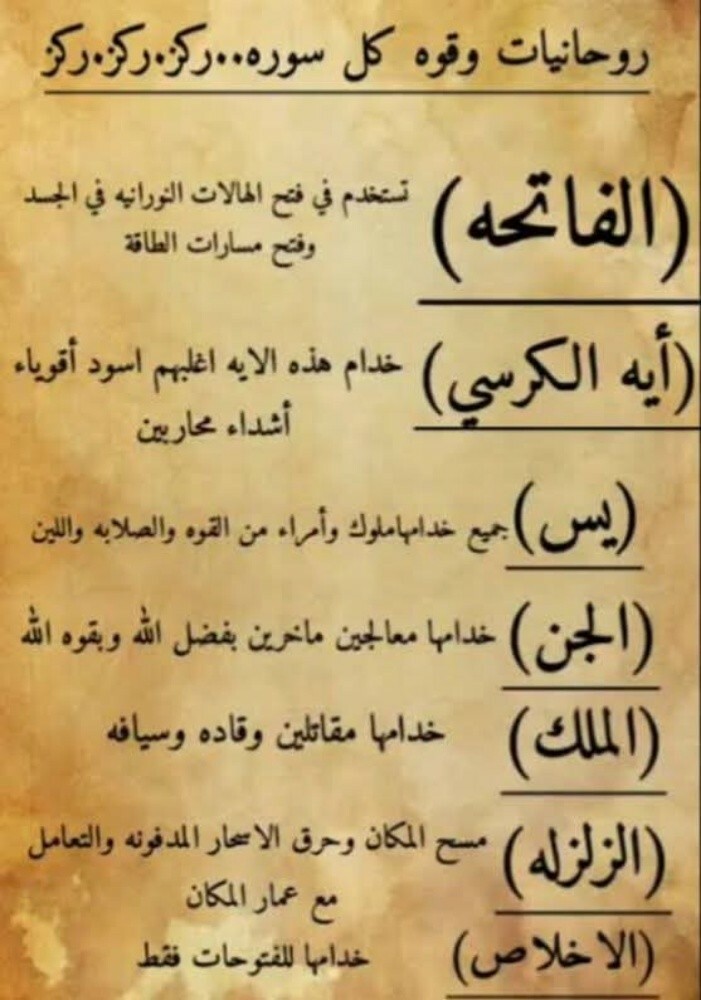 روحانيات وقوه كل سوره..ركز.ركز.ركز
(الفاتحه) تستخدم في فتح الهالات النورانيه في الجسد
وفتح مسارات الطاقة
(أيه الكرسي) خدام هذه الايه اغلبهم اسود أقوياء
أشداء محاربين
(يس) جميع خدامهاملوك وأمراء من القوه والصلابه واللين
(الجن) خدامها معالجين ماخرين بفضل الله وبقوه الله
(الملك) خدامها مقاتلين وقاده وسيافه
(الزلزله) مسح المكان وحرق الاسحار المدفونه والتعامل
مع عمار المكان
(الاخلاص) خدامها للفتوحات فقط